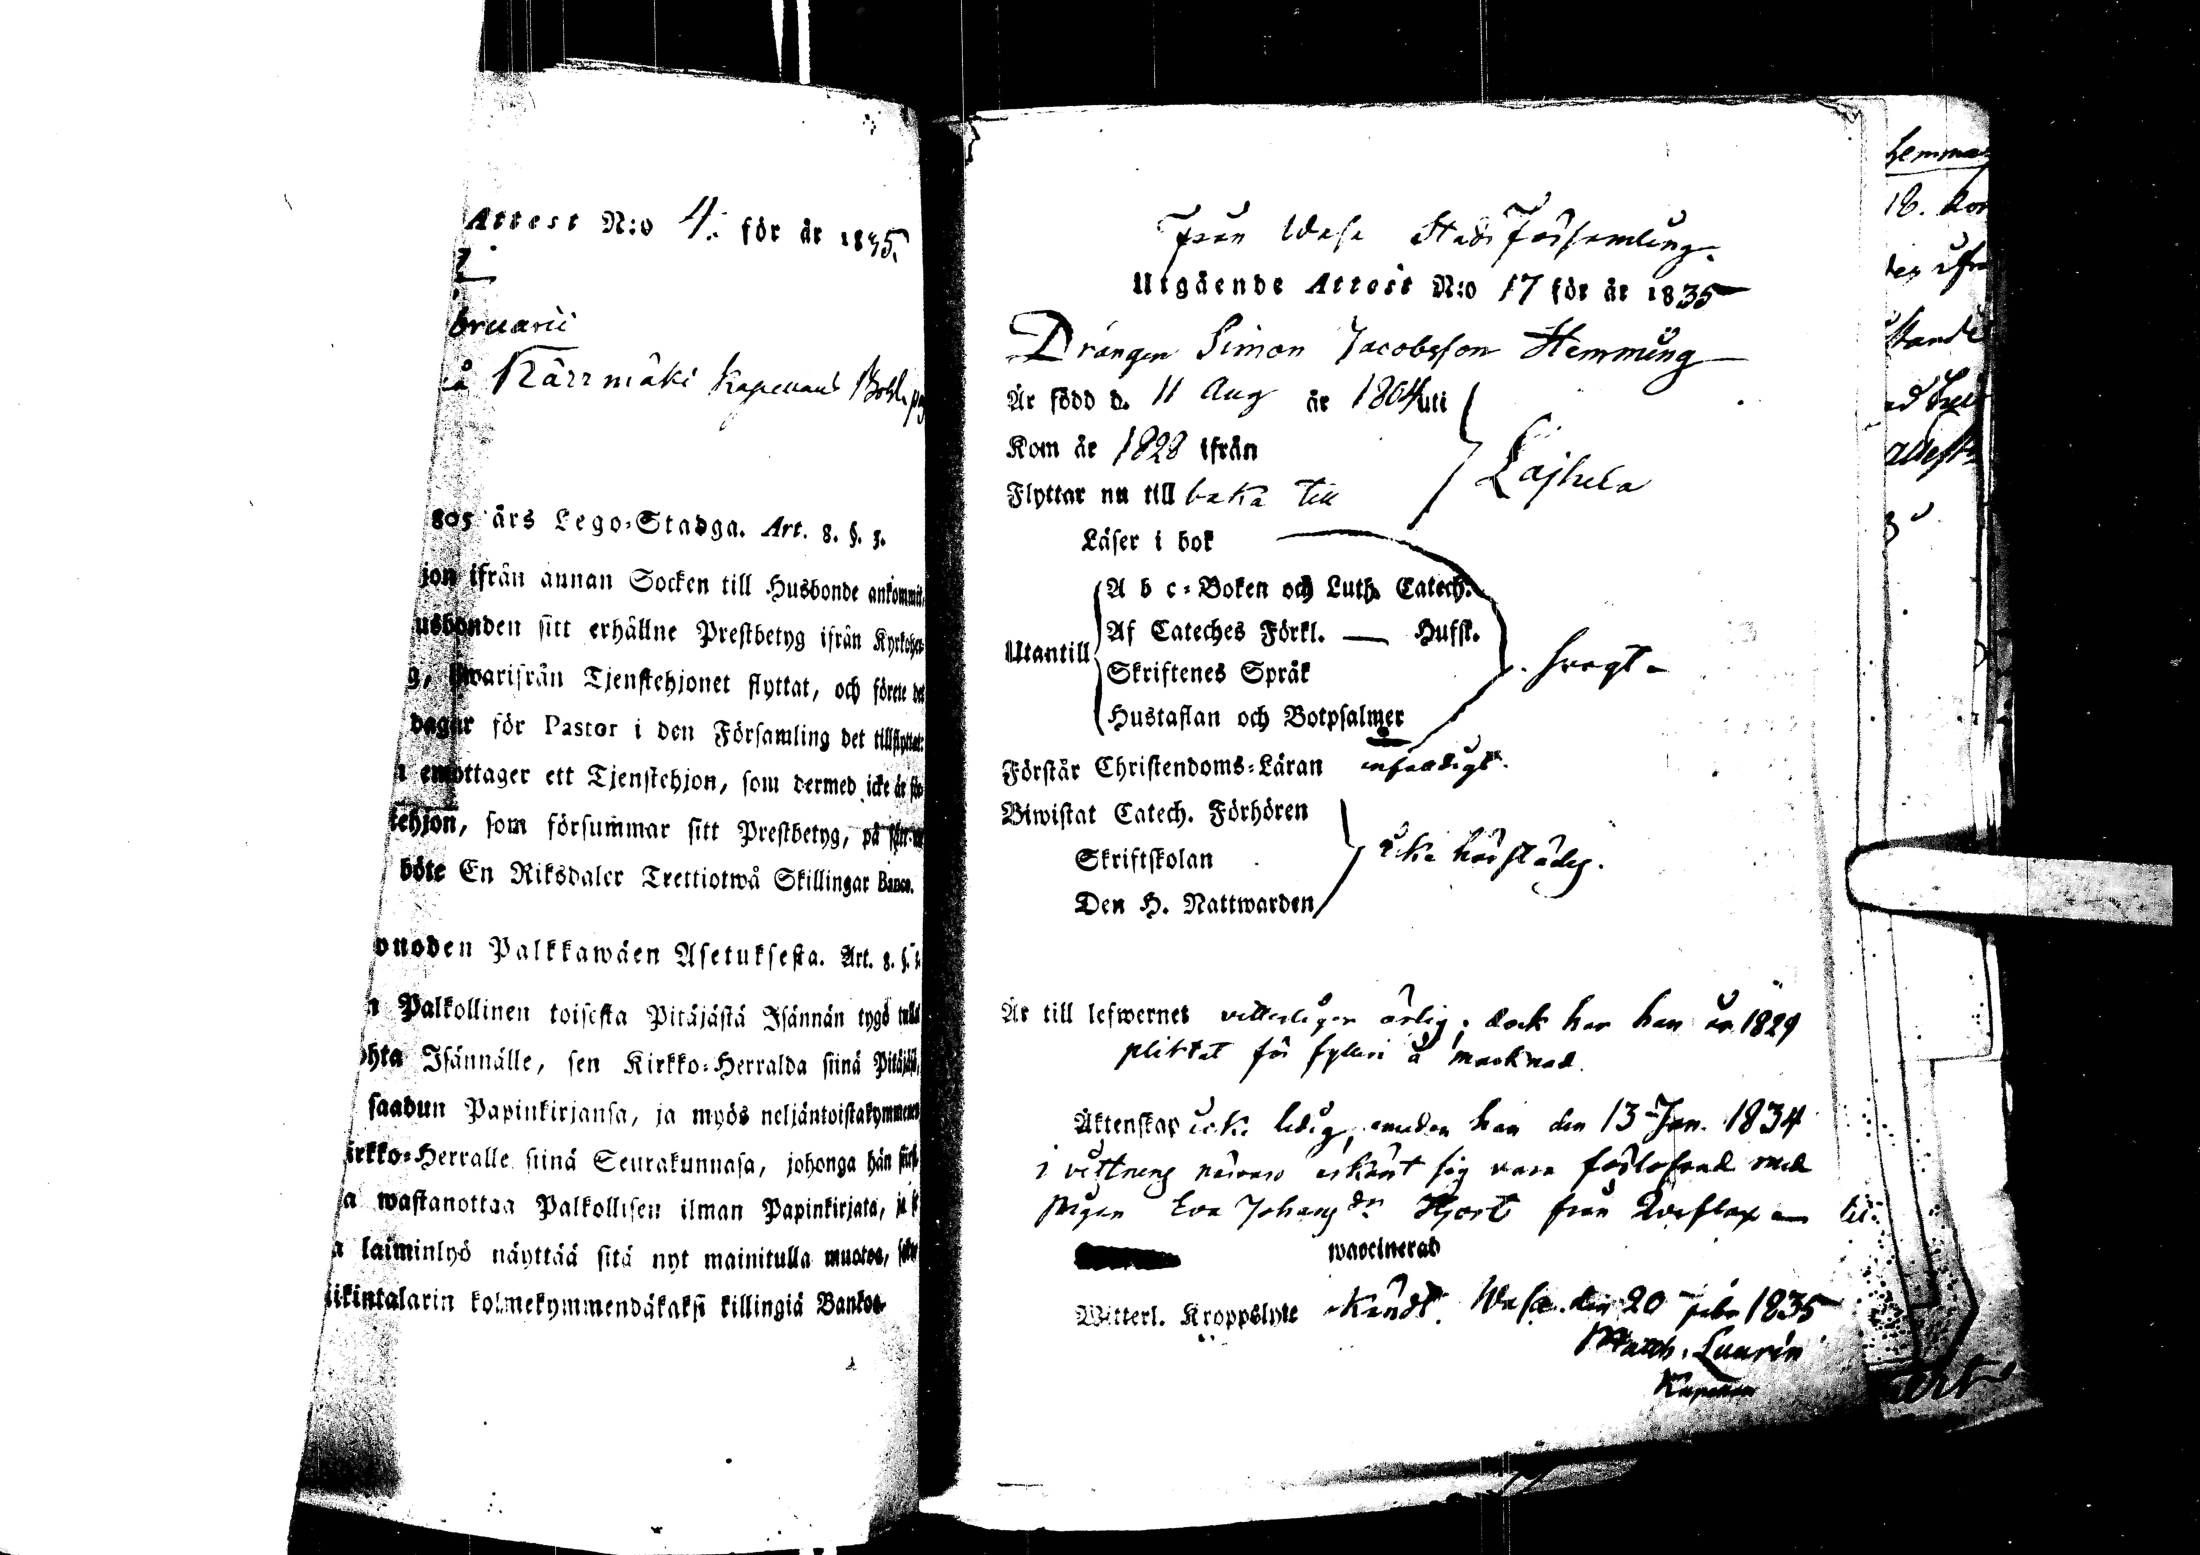 Attest N:o 4. för år 1835.
bruarii
Kärrmäki Kapellans
805 års Lego-Stadga. Art. 8. §. 3.
jon ifrån annan Socken till Husbonde ankommit,
usbonden sitt erhållne Prestbetyg ifrån Kyrkoher-
g, hwarifrån Tjenstehjonet flyttat, och förete det
dagar för Pastor i den Församling det tillflyttat:
n emottager ett Tjenstehjon, som dermed icke är
tehjon, som försummar sitt Prestbetyg, på
böte En Riksdaler Trettiotwå Skillingar Banco.
vuoden Palkkawäen Asetuksesta. Art. 8. §. 3.
n Palkollinen toisesta Pitäjästä Isännän tygö tullut
ohta Isännälle, sen Kirkko-Herralda siinä
saadun Papinkirjansa, ja myös neljäntoistakymmenen
irkko-Herralle siinä Seurakunnasa, johonga hän
a wastanottaa Palkollisen ilman Papinkirjata,
a laiminlyö näyttää sitä nyt mainitulla muotoa,
iikintalarin kolmekymmendäkaksi killingiä Bankos
Från Wasa Stads Församling.
Utgående Attest N:o 17 för år 1835
Drängen Simon Jacobsson Hemming
Är född d. 11 Aug år 1804 uti
Kom år 1828 ifrån
Lajhela
Flyttar nu till baka till
Läser i bok
A b c-Boken och Luth. Catech.
Af Cateches Förkl. — Hufst.
Utantill
Skriftenes Språk
svagt
Hustaflan och Botpsalmer
Förstår Christendoms-Läran enfaldigt.
Biwistat Catech. Förhören
Skriftskolan
icke härstädes.
Den H. Nattwarden
Är till lefwernet vitterligen ärlig; dock har han år 1829
pliktat för fylleri å marknad.
Äktenskap icke ledig, emedan han den 13 Jan. 1834
i vittnens närvaro erkänt sig vara förlofvad med
pigan Eva Johansdr Hjort från Qveflax
waccinerad
Witterl. Kroppslyte Känd. Wasa den 20 Febr 1835
Matth. Laurén
Kapellan
hemma
18.